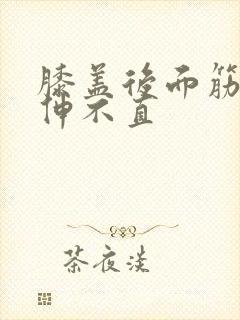 膝盖後而筋
伸不直
茶夜淡